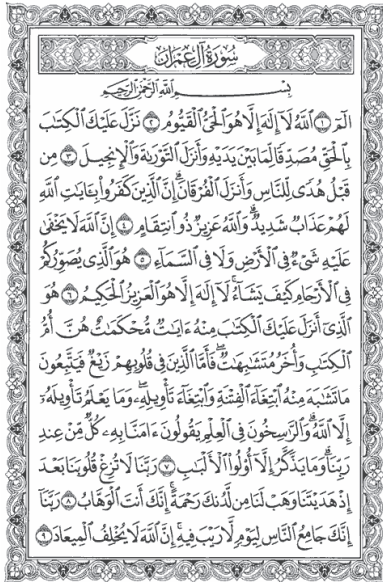 سُورَةُ آلِ عِمْرَانَ
بِسْمِ اللَّهِ الرَّحْمَٰنِ الرَّحِيمِ
الٓمٓ ١ اللَّهُ لَا إِلَٰهَ إِلَّا هُوَ الْحَيُّ الْقَيُّومُ ٢ نَزَّلَ عَلَيْكَ الْكِتَٰبَ
بِالْحَقِّ مُصَدِّقًا لِّمَا بَيْنَ يَدَيْهِ وَأَنزَلَ التَّوْرَىٰةَ وَالْإِنجِيلَ ٣ مِن
قَبْلُ هُدًى لِّلنَّاسِ وَأَنزَلَ الْفُرْقَانَ ۗ إِنَّ الَّذِينَ كَفَرُوا۟ بِـَٔايَٰتِ اللَّهِ
لَهُمْ عَذَابٌ شَدِيدٌ ۗ وَاللَّهُ عَزِيزٌ ذُو انتِقَامٍ ٤ إِنَّ اللَّهَ لَا يَخْفَىٰ
عَلَيْهِ شَىْءٌ فِى الْأَرْضِ وَلَا فِى السَّمَآءِ ٥ هُوَ الَّذِى يُصَوِّرُكُمْ
فِى الْأَرْحَامِ كَيْفَ يَشَآءُ ۚ لَآ إِلَٰهَ إِلَّا هُوَ الْعَزِيزُ الْحَكِيمُ ٦ هُوَ
الَّذِىٓ أَنزَلَ عَلَيْكَ الْكِتَٰبَ مِنْهُ ءَايَٰتٌ مُّحْكَمَٰتٌ هُنَّ أُمُّ
الْكِتَٰبِ وَأُخَرُ مُتَشَٰبِهَٰتٌ ۖ فَأَمَّا الَّذِينَ فِى قُلُوبِهِمْ زَيْغٌ فَيَتَّبِعُونَ
مَا تَشَٰبَهَ مِنْهُ ابْتِغَآءَ الْفِتْنَةِ وَابْتِغَآءَ تَأْوِيلِهِۦ ۗ وَمَا يَعْلَمُ تَأْوِيلَهُۥٓ
إِلَّا اللَّهُ ۗ وَالرَّٰسِخُونَ فِى الْعِلْمِ يَقُولُونَ ءَامَنَّا بِهِۦ كُلٌّ مِّنْ عِندِ
رَبِّنَا ۗ وَمَا يَذَّكَّرُ إِلَّآ أُو۟لُوا۟ الْأَلْبَٰبِ ٧ رَبَّنَا لَا تُزِغْ قُلُوبَنَا بَعْدَ
إِذْ هَدَيْتَنَا وَهَبْ لَنَا مِن لَّدُنكَ رَحْمَةً ۚ إِنَّكَ أَنتَ الْوَهَّابُ ٨ رَبَّنَآ
إِنَّكَ جَامِعُ النَّاسِ لِيَوْمٍ لَّا رَيْبَ فِيهِ ۚ إِنَّ اللَّهَ لَا يُخْلِفُ الْمِيعَادَ ٩